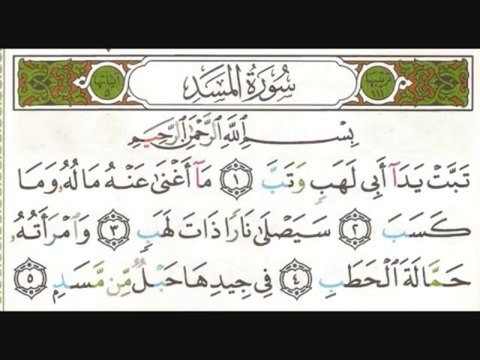 سُورَةُ المَسَد
بِسْمِ اللَّهِ الرَّحْمَٰنِ الرَّحِيمِ
تَبَّتْ يَدَآ أَبِى لَهَبٍ وَتَبَّ ١ مَآ أَغْنَىٰ عَنْهُ مَالُهُۥ وَمَا
كَسَبَ ٢ سَيَصْلَىٰ نَارًا ذَاتَ لَهَبٍ ٣ وَٱمْرَأَتُهُۥ
حَمَّالَةَ ٱلْحَطَبِ ٤ فِى جِيدِهَا حَبْلٌ مِّن مَّسَدٍ ٥